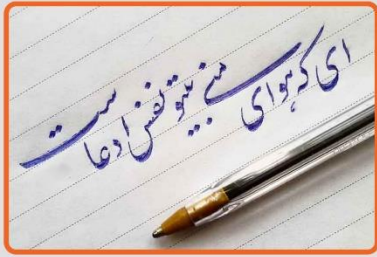 ای که هوای منی بی تو نفس ادعاست